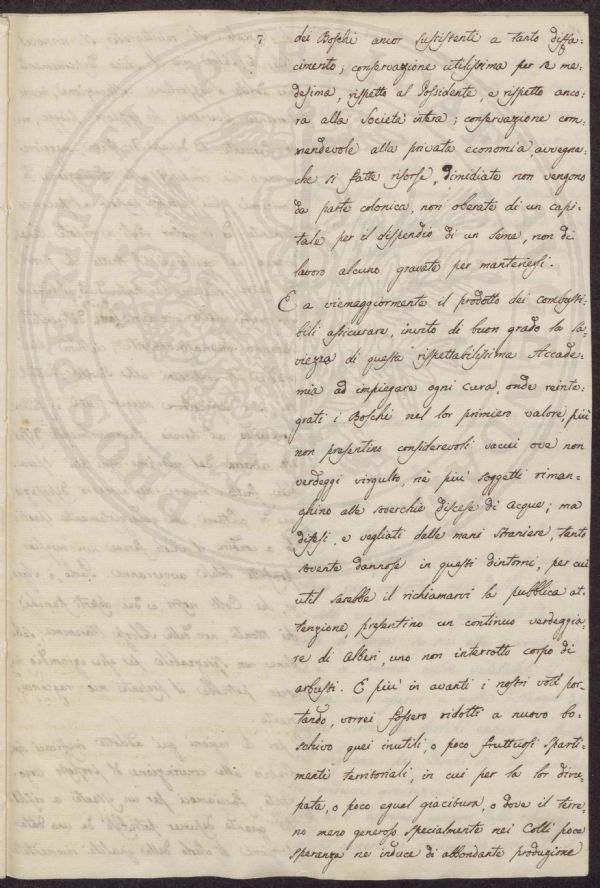 7
dei Boschi ancor sussistenti a tanto disfa-
cimento; conservazione utilissima per se me-
desima, rispetto al Possidente, e rispetto anco-
ra alla Società intera; conservazione com-
mendevole alla privata economia, avvegna-
che si fatte risorse, dimidiate non vengono
da parte colonica, non oberate di un capi-
tale per il dispendio di un seme, non di
lavoro alcuno gravate per mantenersi.
E a viemaggiormente il prodotto dei combusti-
bili assicurare, invito di buon grado la sa-
viezza di questa rispettabilissima Accade-
mia ad impiegare ogni cura, onde reinte-
grati i Boschi nel lor primiero valore, più
non presentino considerevoli vacui ove non
verdeggi virgulto, nè più soggetti riman-
ghino alle soverchie discese di Acque; ma
difesi, e vegliati dalle mani straniere, tanto
sovente dannose in questi dintorni, per cui
util sarebbe il richiamarvi la pubblica at-
tenzione, presentino un continuo verdeggia-
re di Alberi, uno non interrotto corpo di
arbusti. E più in avanti i nostri voti por-
tando, vorrei fossero ridotti a nuovo bo-
schivo quei inutili, o poco fruttuosi sparti-
menti territoriali, in cui per la lor diru-
pata, o poco egual giacitura, o dove il terre-
no meno generoso specialmente nei Colli poca
speranza ne induce di abbondante produzione